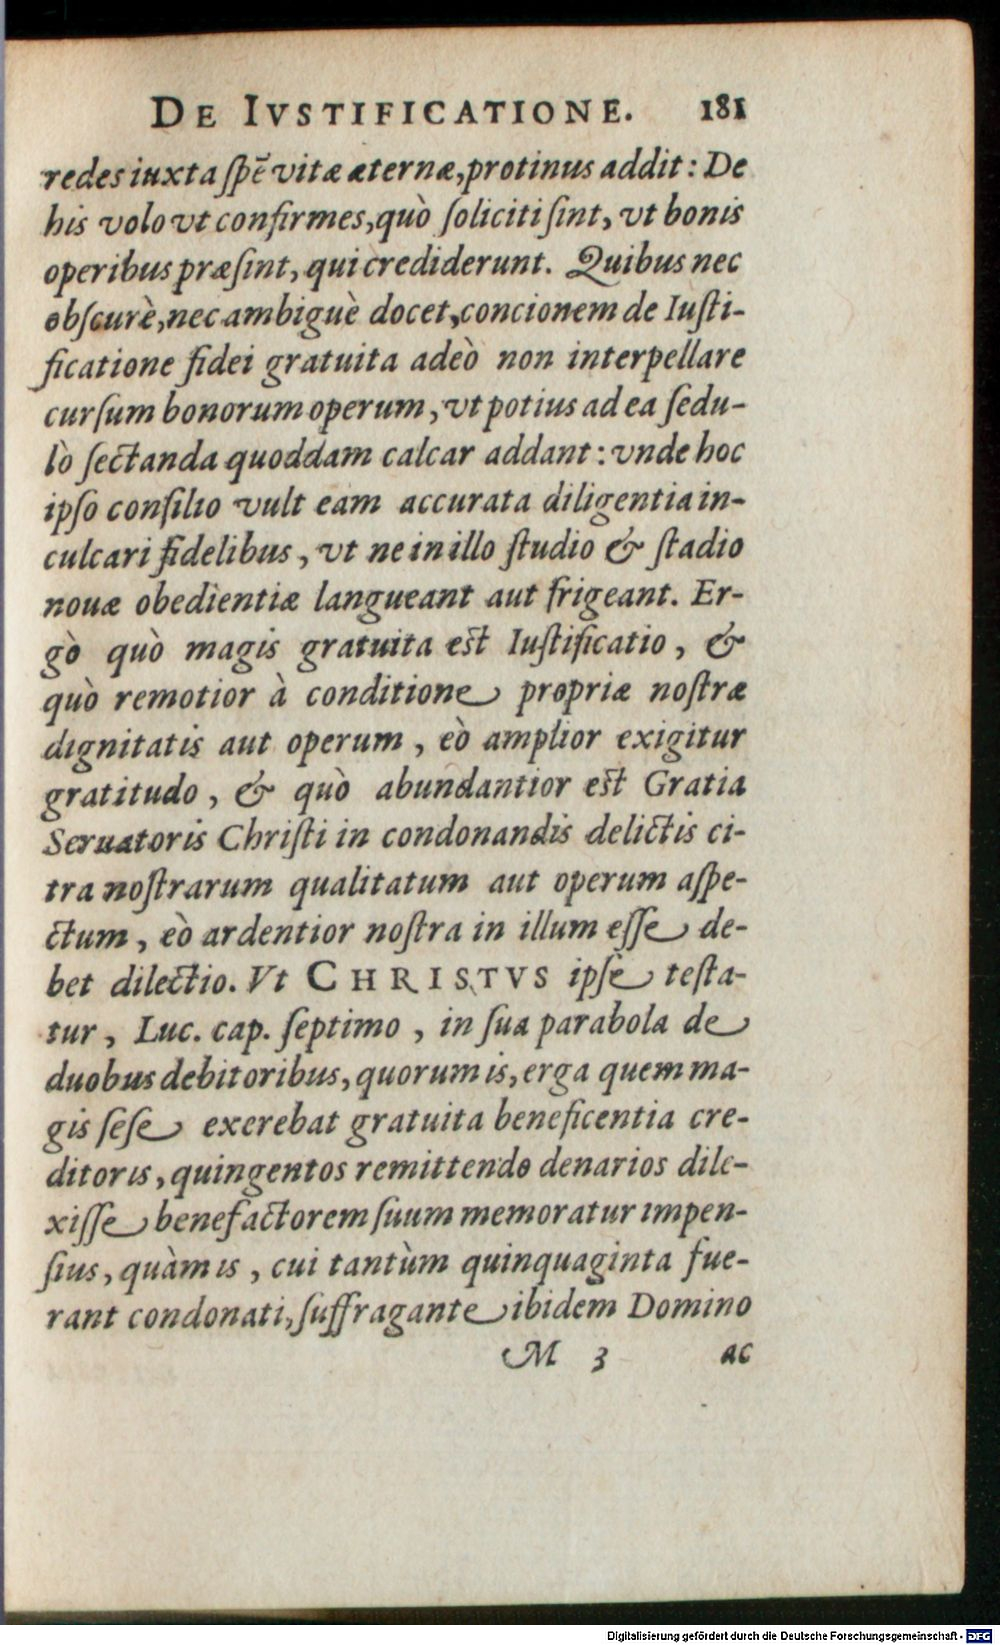 DE IVSTIFICATIONE. 181
redes iuxta ſpē vitæ æternæ, protinus addit: De
his volo vt confirmes, quò ſoliciti ſint, vt bonis
operibus præſint, qui crediderunt. Quibus nec
obſcurè, nec ambiguè docet, concionem de Iuſti-
ficatione fidei gratuita adeò non interpellare
curſum bonorum operum, vt potius ad ea ſedu-
lò ſectanda quoddam calcar addant: vnde hoc
ipſo conſilio vult eam accurata diligentia in-
culcari fidelibus, vt ne in illo ſtudio & ſtadio
nouæ obedientiæ langueant aut frigeant. Er-
gò quò magis gratuita eſt Iuſtificatio, &
quò remotior à conditione propriæ noſtræ
dignitatis aut operum, eò amplior exigitur
gratitudo, & quò abundantior eſt Gratia
Seruatoris Chriſti in condonandis delictis ci-
tra noſtrarum qualitatum aut operum aſpe-
ctum, eò ardentior noſtra in illum eſſe de-
bet dilectio. Vt CHRISTVS ipſe teſta-
tur, Luc. cap. ſeptimo, in ſua parabola de
duobus debitoribus, quorum is, erga quem ma-
gis ſeſe exerebat gratuita beneficentia cre-
ditoris, quingentos remittendo denarios dile-
xiſſe benefactorem ſuum memoratur impen-
ſius, quàm is, cui tantùm quinquaginta fue-
rant condonati, ſuffragante ibidem Domino
M 3 ac
Digitalisierung gefördert durch die Deutsche Forschungsgemeinschaft - DFG